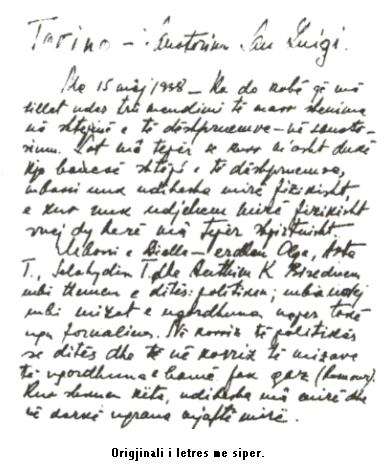 Torino – Sanatorium San Luigi.
Me 15 maj 1938 – Ka do kohë që më
sillet nder tru mendimi të marr shenime
në shtëpinë e të dëshpruemve – në sanato-
rium. Sot më tepër se kurr m'asht dukë
kjo banesë shtëpi e të dëshpruemve,
mbassi nuk ndihesha mirë fizikisht,
e kur nuk ndjehem mirë fizikisht
vuej dy herë më tepër shpirtnisht
Mbasi e Dielle – erdhën Olga, Asta
T., Selahydin T. dhe Recthim K. Biseduem
mbi themen e ditës: politiken; mbi
mbi mizat e ngordhuna neper tokë
nga formalina. Në korriz të politikës
se ditës dhe të në korriz të mizave
të ngordhuna e hamë gaz (humour).
Kur shkuen këta, ndihesha më mirë dhe
në darkë ngrana mjaftë mirë.
Origjinali i letres me siper.